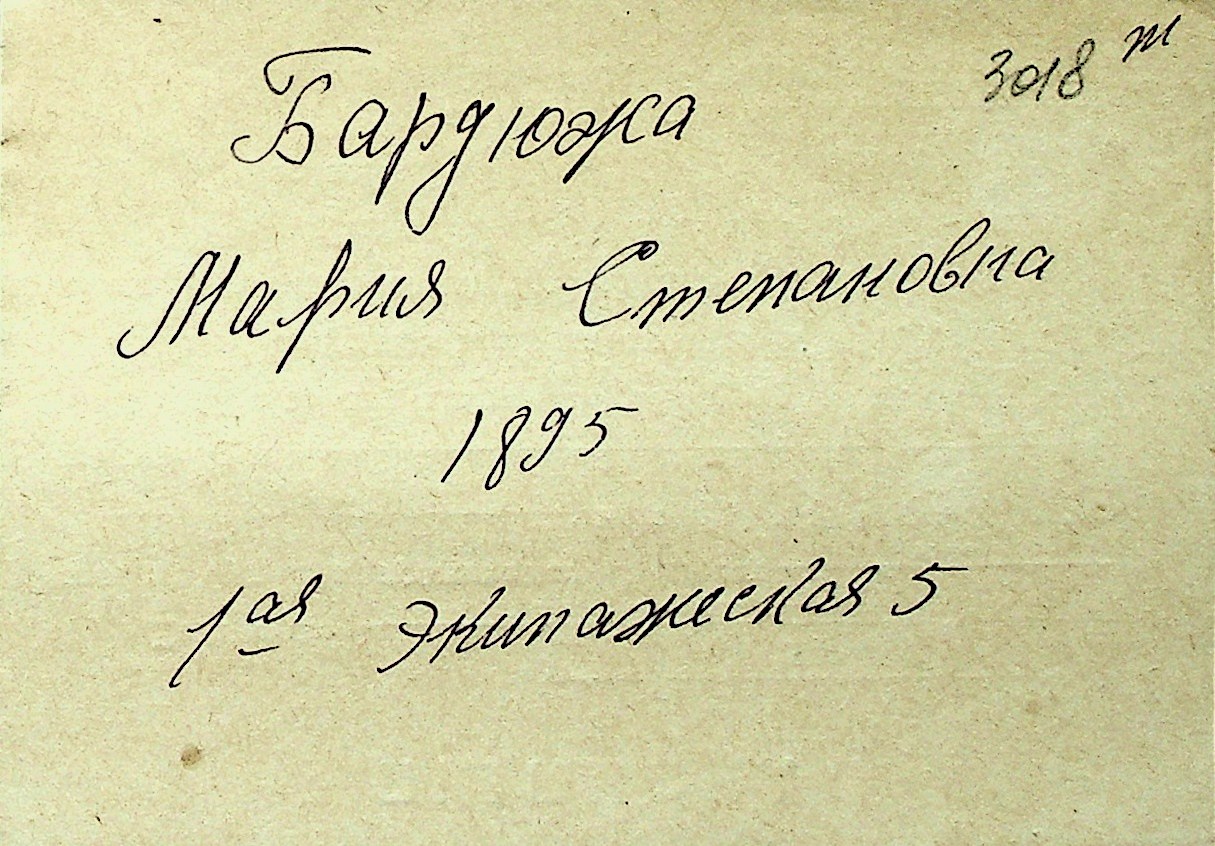 3018 т
Бардюжа
Мария Степановна
1895
1ая Экипажеская 5